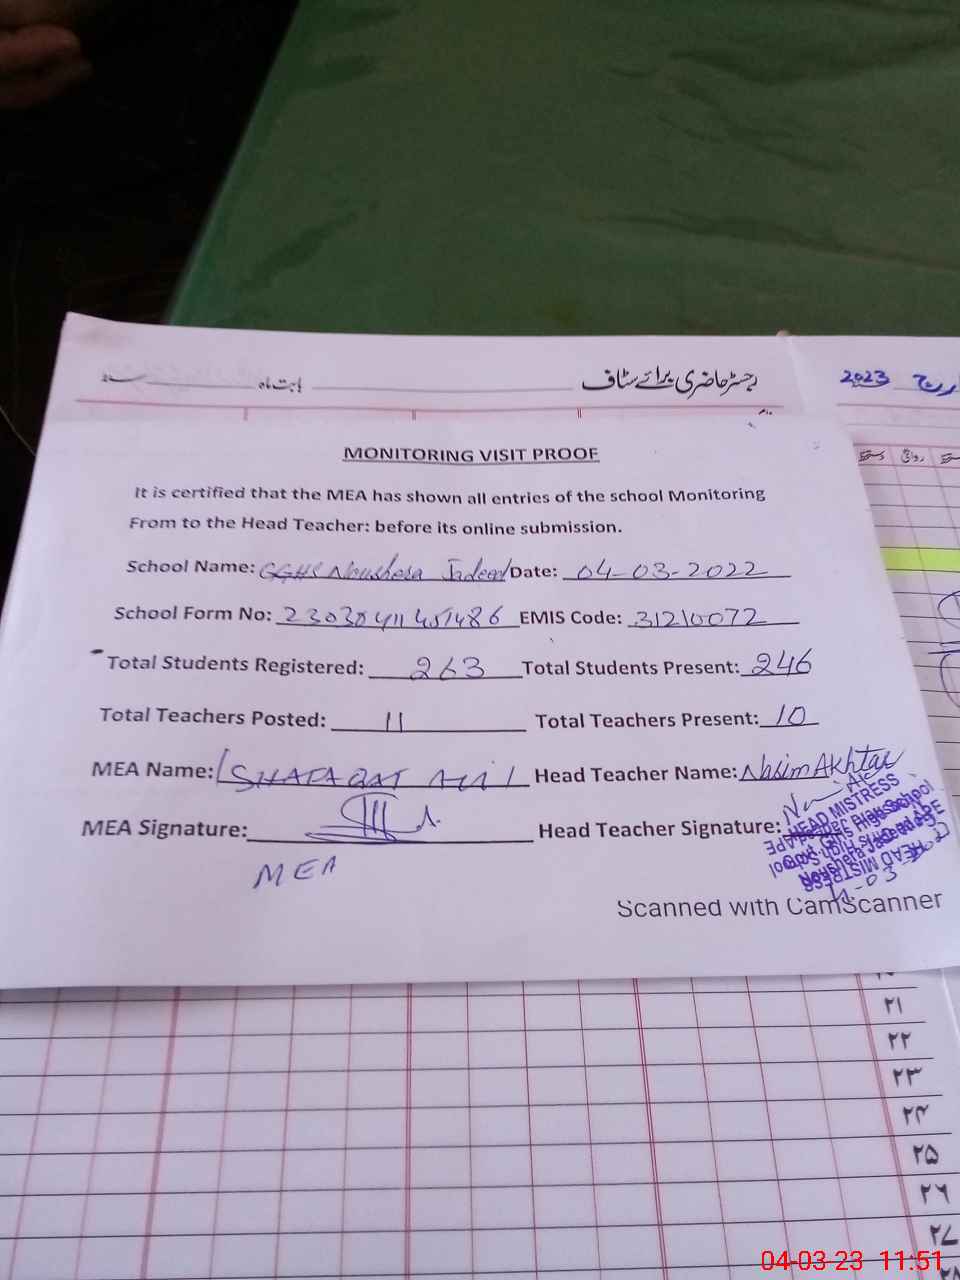 رجسٹر حاضری برائے سٹاف بابت ماہ
2023
MONITORING VISIT PROOF
It is certified that the MEA has shown all entries of the school Monitoring
From to the Head Teacher: before its online submission.
School Name: GGHS Noushera Jadeed Date: 04-03-2022
School Form No: EMIS Code: 31210072
Total Students Registered: 263 Total Students Present: 246
Total Teachers Posted: 11 Total Teachers Present: 10
MEA Name: SHAFAQAT ALI Head Teacher Name: Nasim Akhtar
MEA Signature: Head Teacher Signature:
HEAD MISTRESS
MEA
Scanned with CamScanner
۲۱
۲۲
۲۳
۲۴
۲۵
۲۶
۲۷
۲۸
04-03-23 11:51